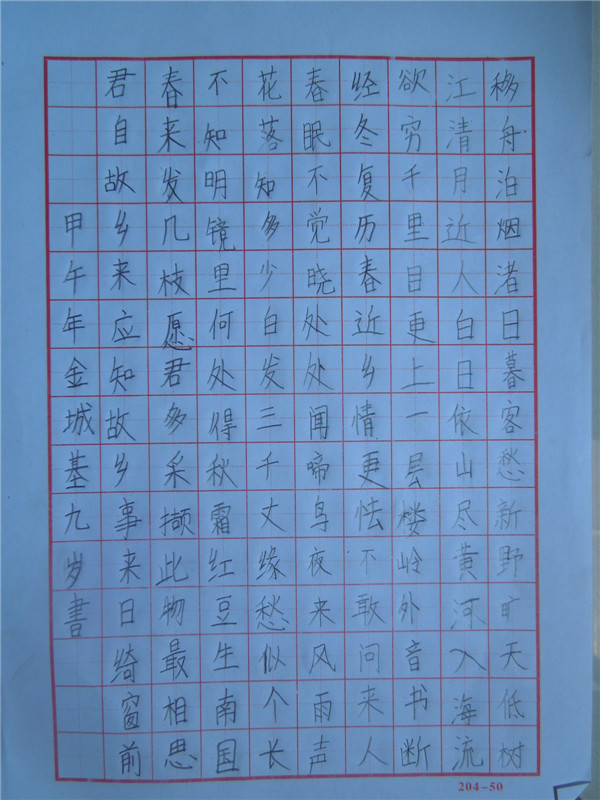 移舟泊烟渚日暮客愁新野旷天低树
江清月近人白日依山尽黄河入海流
欲穷千里目更上一层楼岭外音书断
经冬复历春近乡情更怯不敢问来人
春眠不觉晓处处闻啼鸟夜来风雨声
花落知多少白发三千丈缘愁似个长
不知明镜里何处得秋霜红豆生南国
春来发几枝愿君多采撷此物最相思
君自故乡来应知故乡事来日绮窗前
甲午年金城基九岁書
204-50